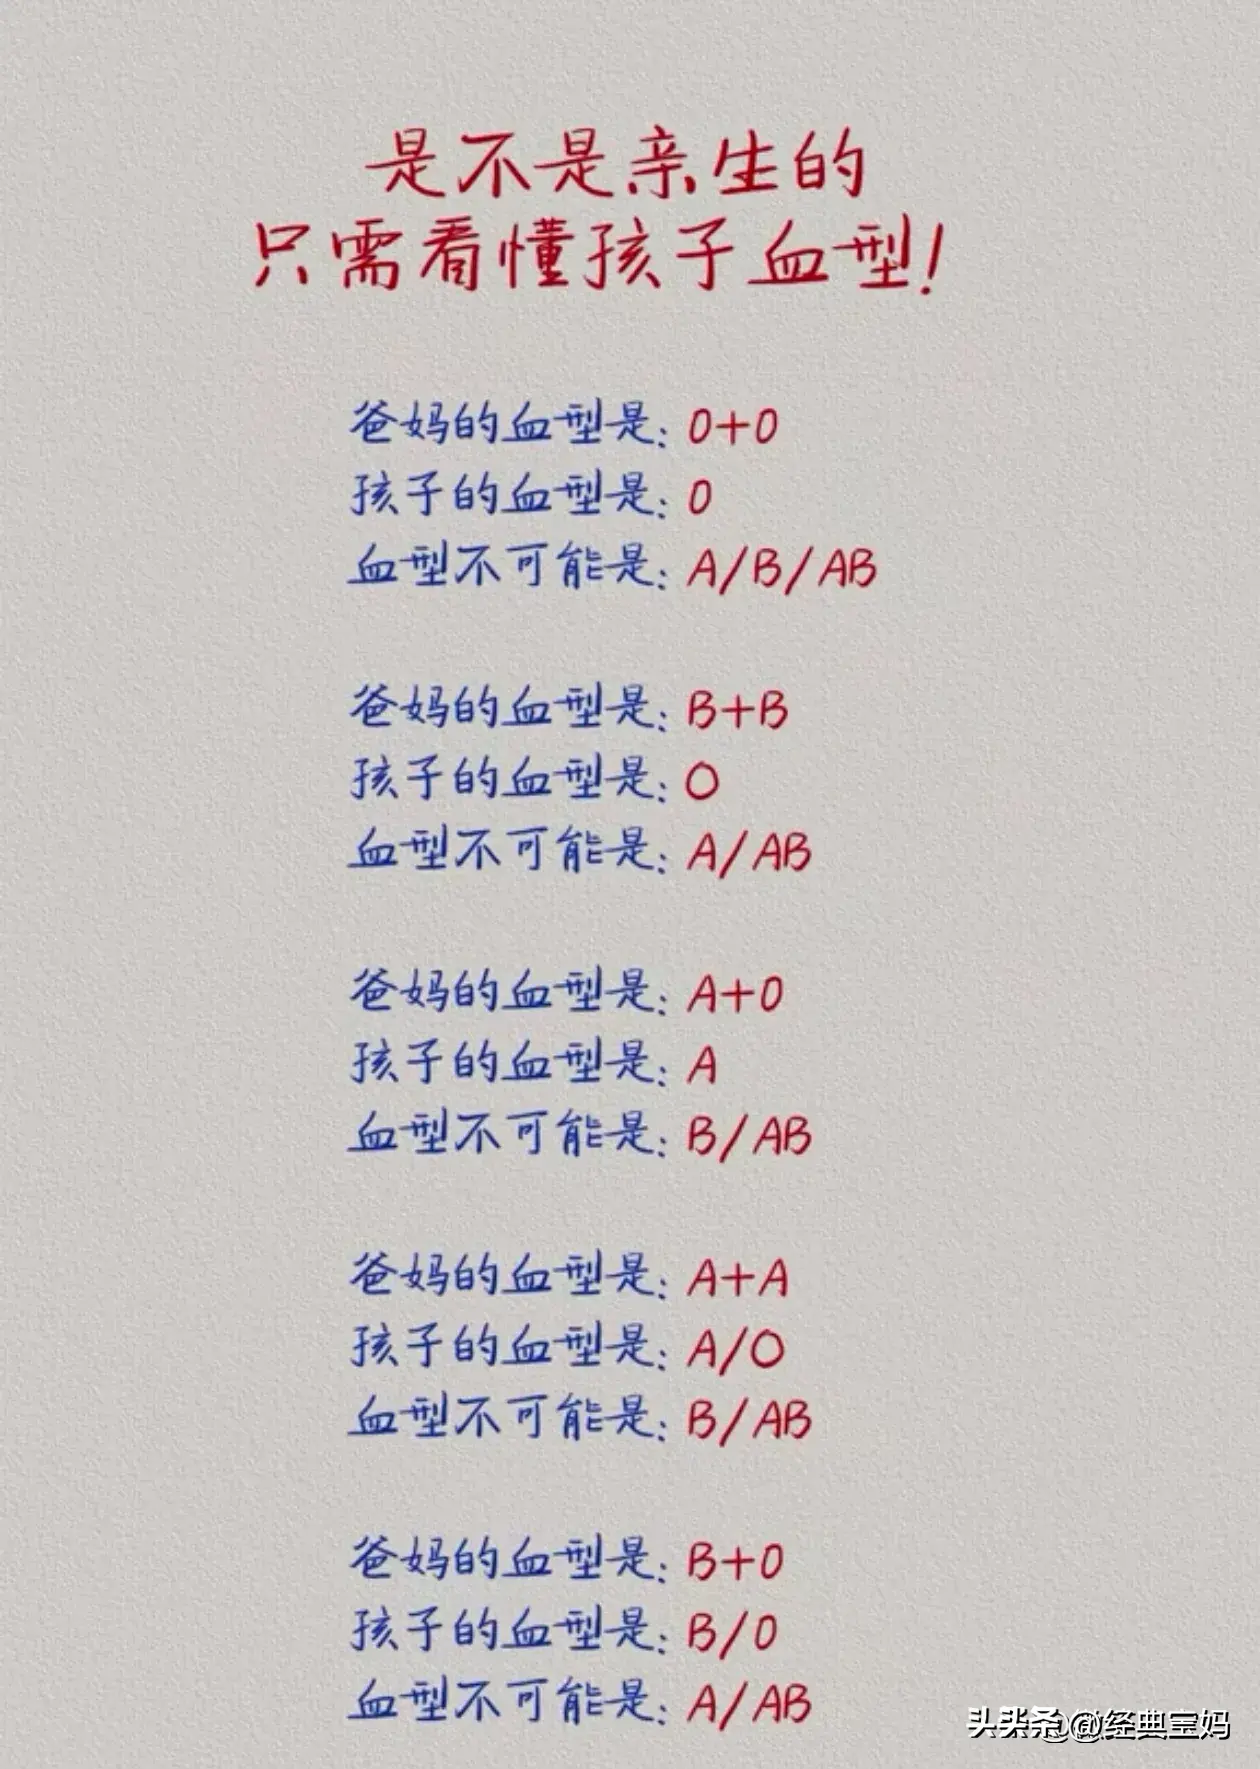 是不是亲生的
只需看懂孩子血型！
爸妈的血型是：O+O
孩子的血型是：O
血型不可能是：A/B/AB
爸妈的血型是：B+B
孩子的血型是：O
血型不可能是：A/AB
爸妈的血型是：A+O
孩子的血型是：A
血型不可能是：B/AB
爸妈的血型是：A+A
孩子的血型是：A/O
血型不可能是：B/AB
爸妈的血型是：B+O
孩子的血型是：B/O
血型不可能是：A/AB
头条@经典宝妈